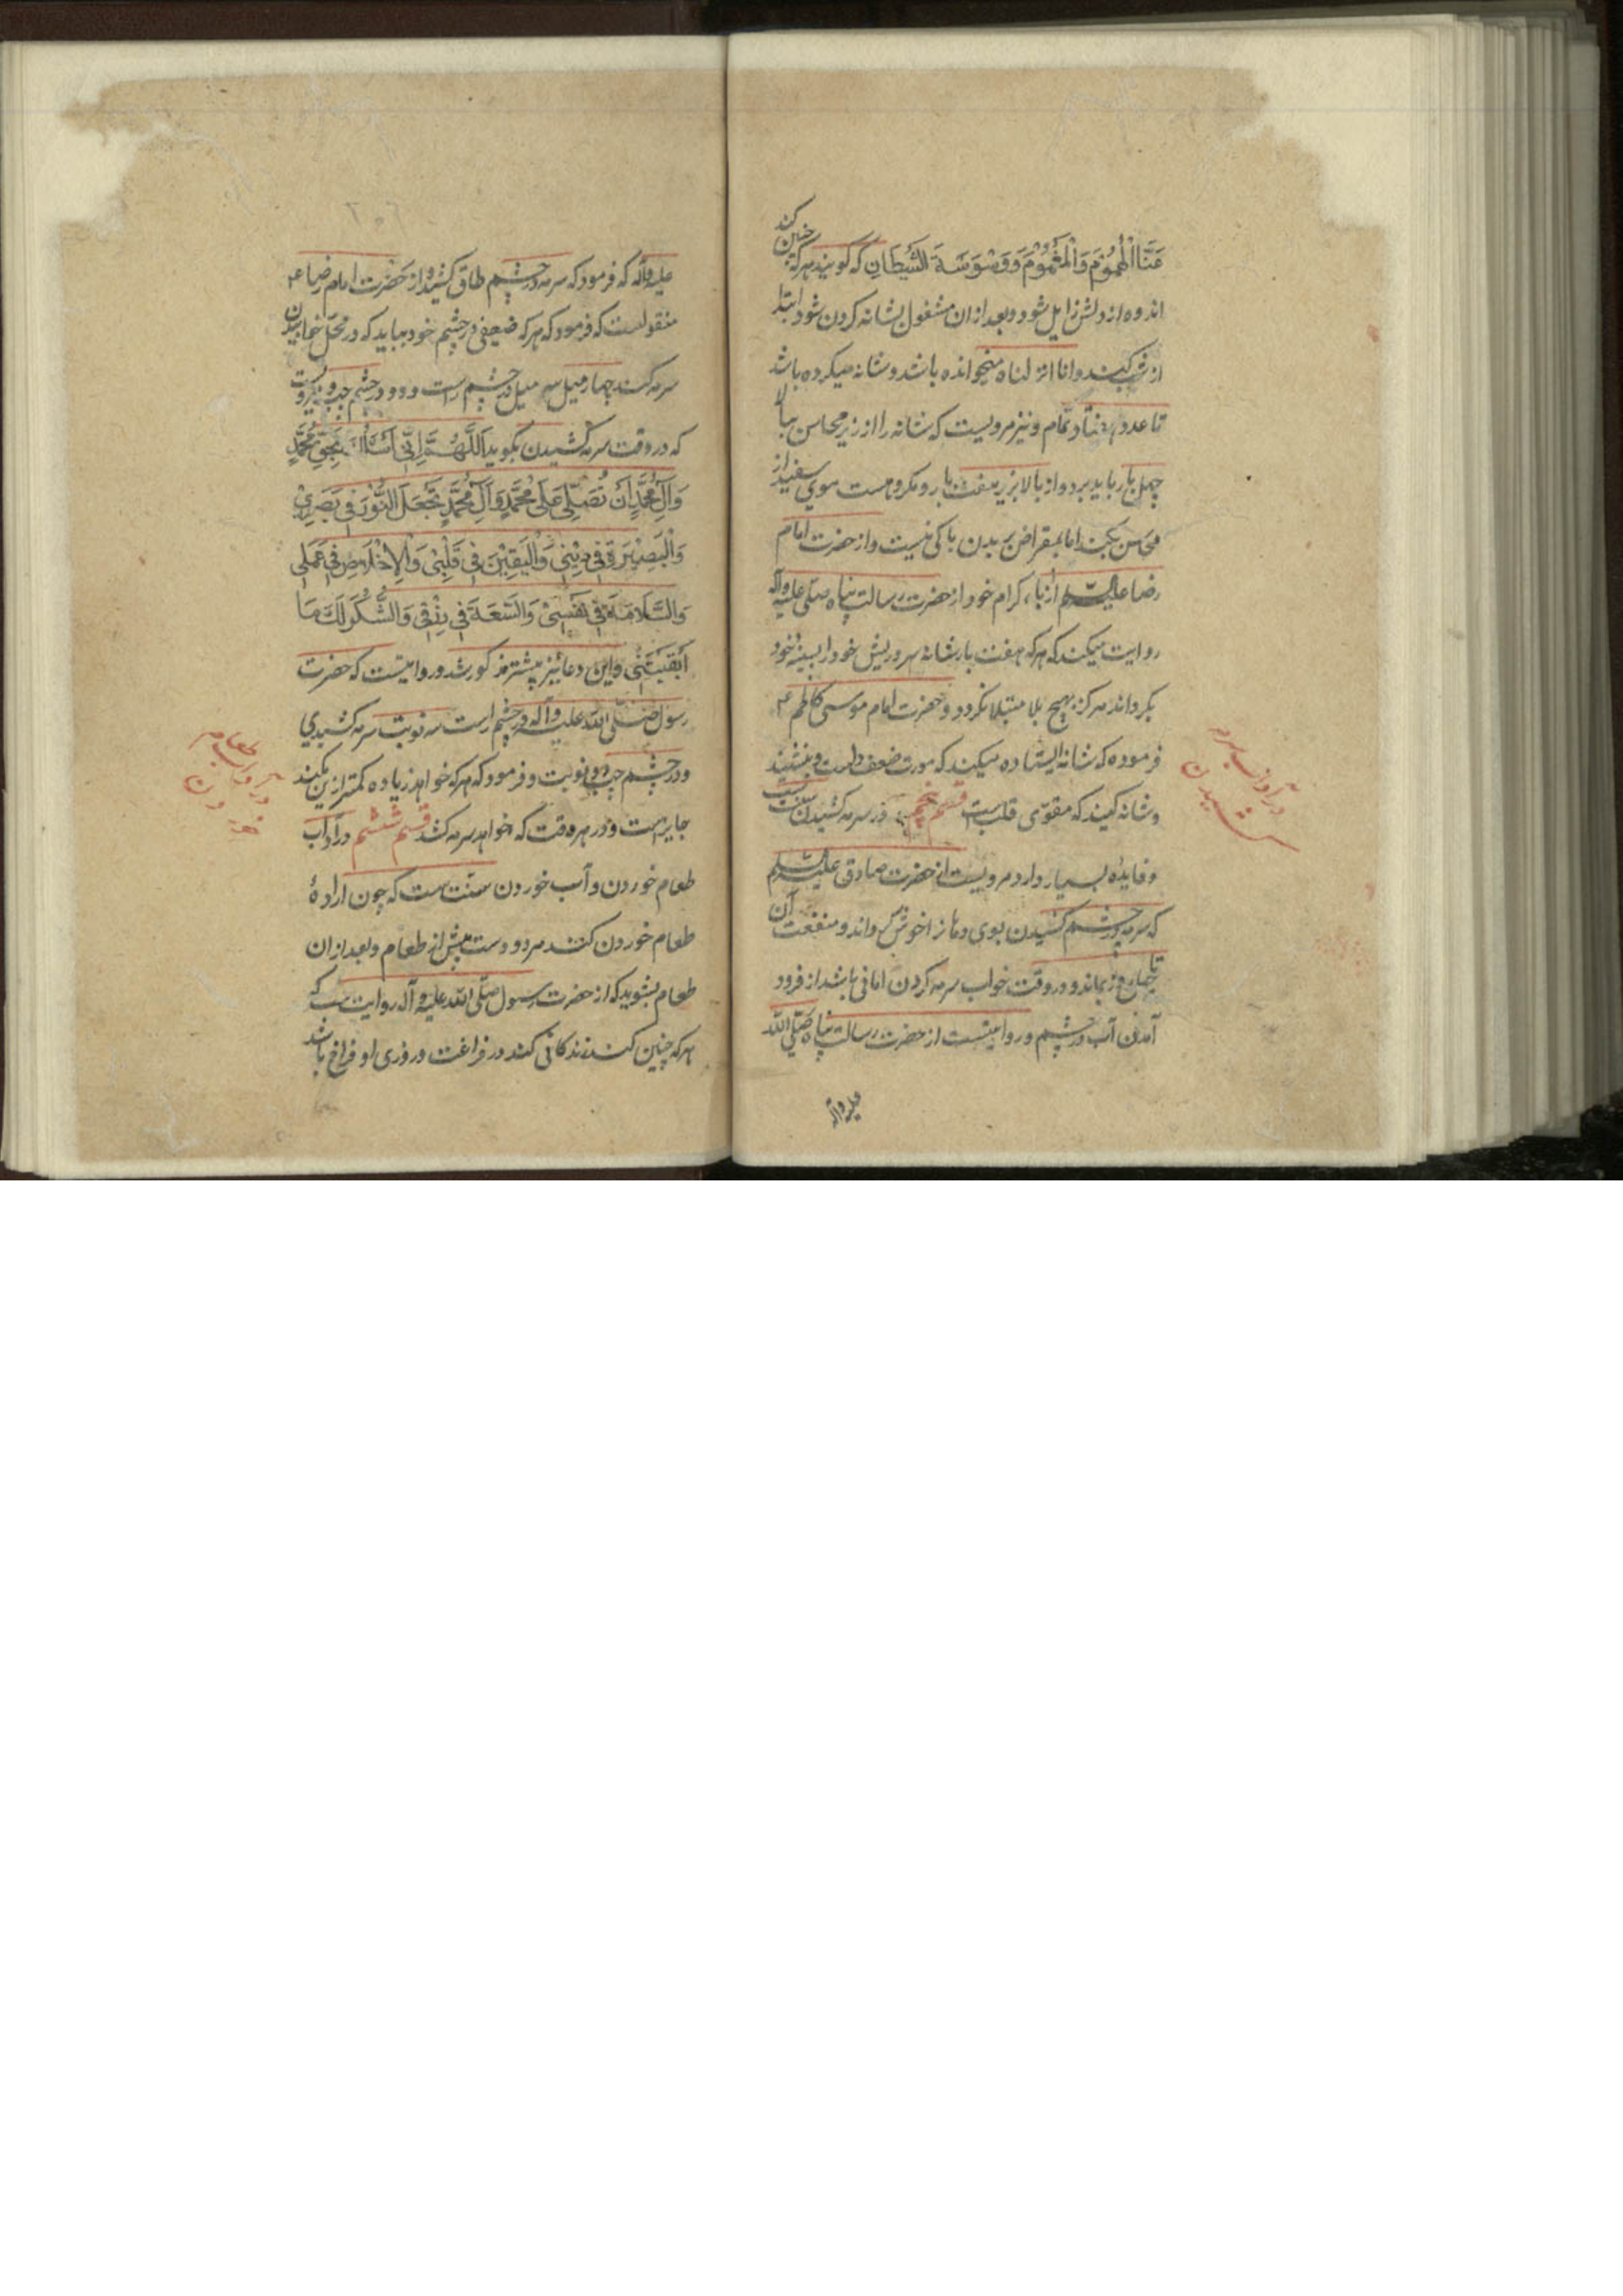 عَنَّا الْهُمُوْمَ وَالْغُمُوْمَ وَوَسْوَسَةَ الشَّيْطَانِ که گویند هرکه چنین کند
اندوه از دلش زایل شود و بعد از ان مشغول بشانه کردن شود ابتدا
از زیر کند و انا انزلناه میخوانده باشد و شانه میکرده باشد
تا عدد هفتاد تمام و نیز مرویست که شانه را از زیر محاسن ببالا
چهل بار باید برد و از بالا بزیر هفت بار و مکروهست موی سفید از
محاسن بکند اما بمقراض بریدن باکی نیست و از حضرت امام
رضا علیه السلم از آباء کرام خود از حضرت رسالت پناه صلی علیه وآله
روایت میکند که هرکه هفت بار شانه سر و ریش خود را بسینه خود
بگرداند هرگز بهیچ بلا مبتلا نگردد و حضرت امام موسی کاظم ع
فرموده که شانه ایستاده میکند که مورث ضعف دلست و بنشیند
و شانه کنید که مقوی قلب است قسم پنجم در سرمه کشیدن سنت است
و فایده بسیار دارد مرویست از حضرت صادق علیه السلم
که سرمه در چشم کشیدن بوی دهانرا خوش کرداند و منفعت آن
تا چهل روز بماند و در وقت خواب سرمه کردن امانی باشد از فرود
آمدن آب در چشم و روایتست از حضرت رسالت پناه صلی الله
علیه وآله
در آداب سرمه
کشیدن
علیه وآله که فرمود که سرمه در چشم طاق کشید و از حضرت امام رضا ع
منقولست که فرمود که هرکه ضعیفی در چشم خود بیابد که در محل خوابیدن
سرمه کند چهار میل سه میل در چشم راست و دو در چشم چپ و مرویست
که در وقت سرمه کشیدن بگوید اَللَّهُمَّ اِنِّی اَسْئَلُكَ بِحَقِّ مُحَمَّدٍ
وَآلِ مُحَمَّدٍ اَنْ تُصَلِّیَ عَلَی مُحَمَّدٍ وَآلِ مُحَمَّدٍ تَجْعَلَ النُّوْرَ فِی بَصَرِیْ
وَالْبَصِیْرَةَ فِی دِیْنِی وَالْیَقِیْنَ فِی قَلْبِیْ وَالْاِخْلَاصَ فِی عَمَلِی
وَالسَّلَامَةَ فِی نَفْسِیْ وَالسَّعَةَ فِی رِزْقِی وَالشُّكْرَ لَكَ مَا
اَبْقَیْتَنِی و این دعا نیز پیشتر مذکور شد و روایتست که حضرت
رسول صلّی الله علیه وآله در چشم راست سه نوبت سرمه کشیدی
و در چشم چپ دو نوبت و فرمود که هرکه خواهد زیاده کمتر ازین بکند
جایز است و در هر وقت که خواهد سرمه کشد قسم ششم در آداب
طعام خوردن و آب خوردن سنت است که چون اراده
طعام خوردن کنند هر دو دست پیش از طعام و بعد از ان
طعام بشوید که از حضرت رسول صلّی الله علیه وآله روایتست که
هرکه چنین کند زندکانی کند در فراغت و روزی او فراخ باشد
در آداب طعام
خوردن